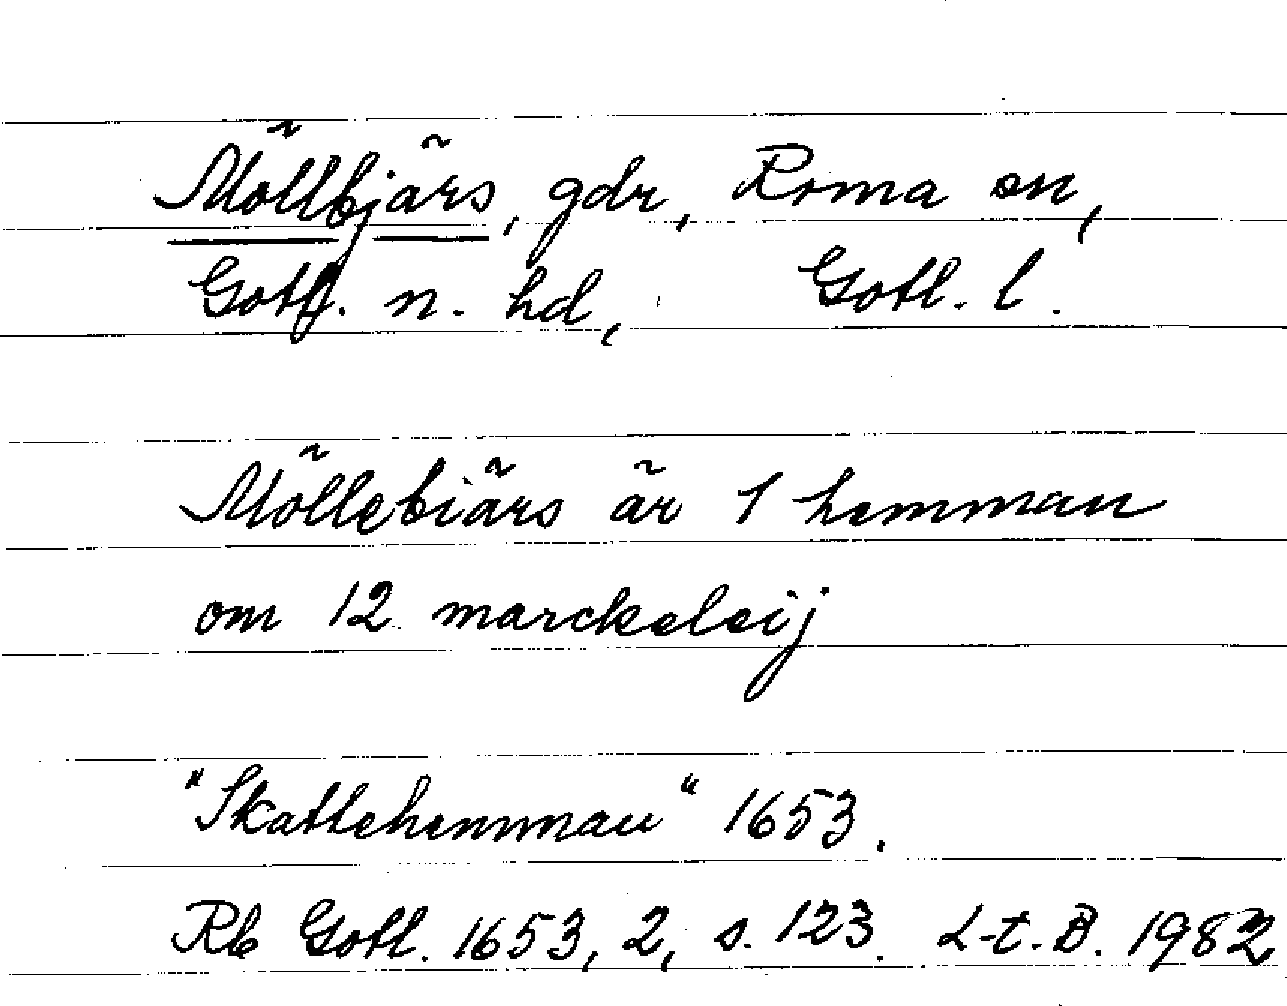 Möllbjärs, gdr, Roma sn,
Gotl. n. hd, Gotl. l.
Möllebiärs är 1 hemman
om 12 marckeleij
"Skattehemman" 1653.
Rb Gotl. 1653, 2, s. 123. L-t. B. 1982